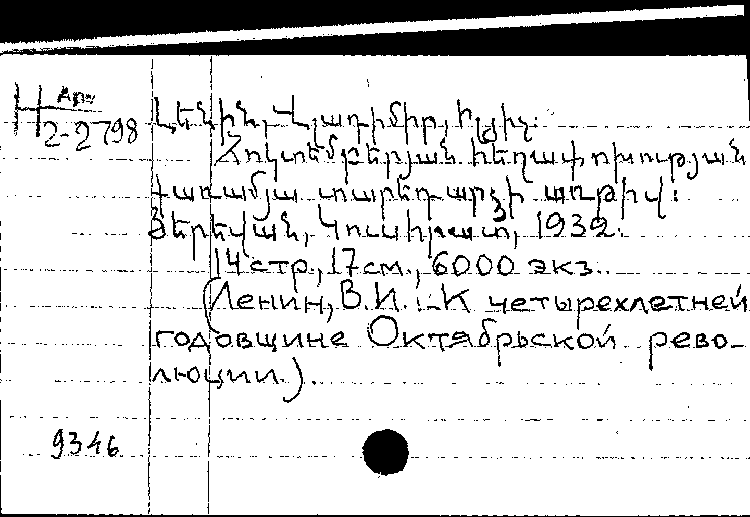 Н Арм
2-2798
Լենին, Վլադիմիր, Իլյիչ։
Հոկտեմբերյան հեղափոխության
քառամյա տարեդարձի առթիվ։
Յերեվան, Կուսհրատ, 1932.
14 стр., 17 см., 6000 экз.
(Ленин, В.И. К четырехлетней
годовщине Октябрьской рево-
люции.).
9346